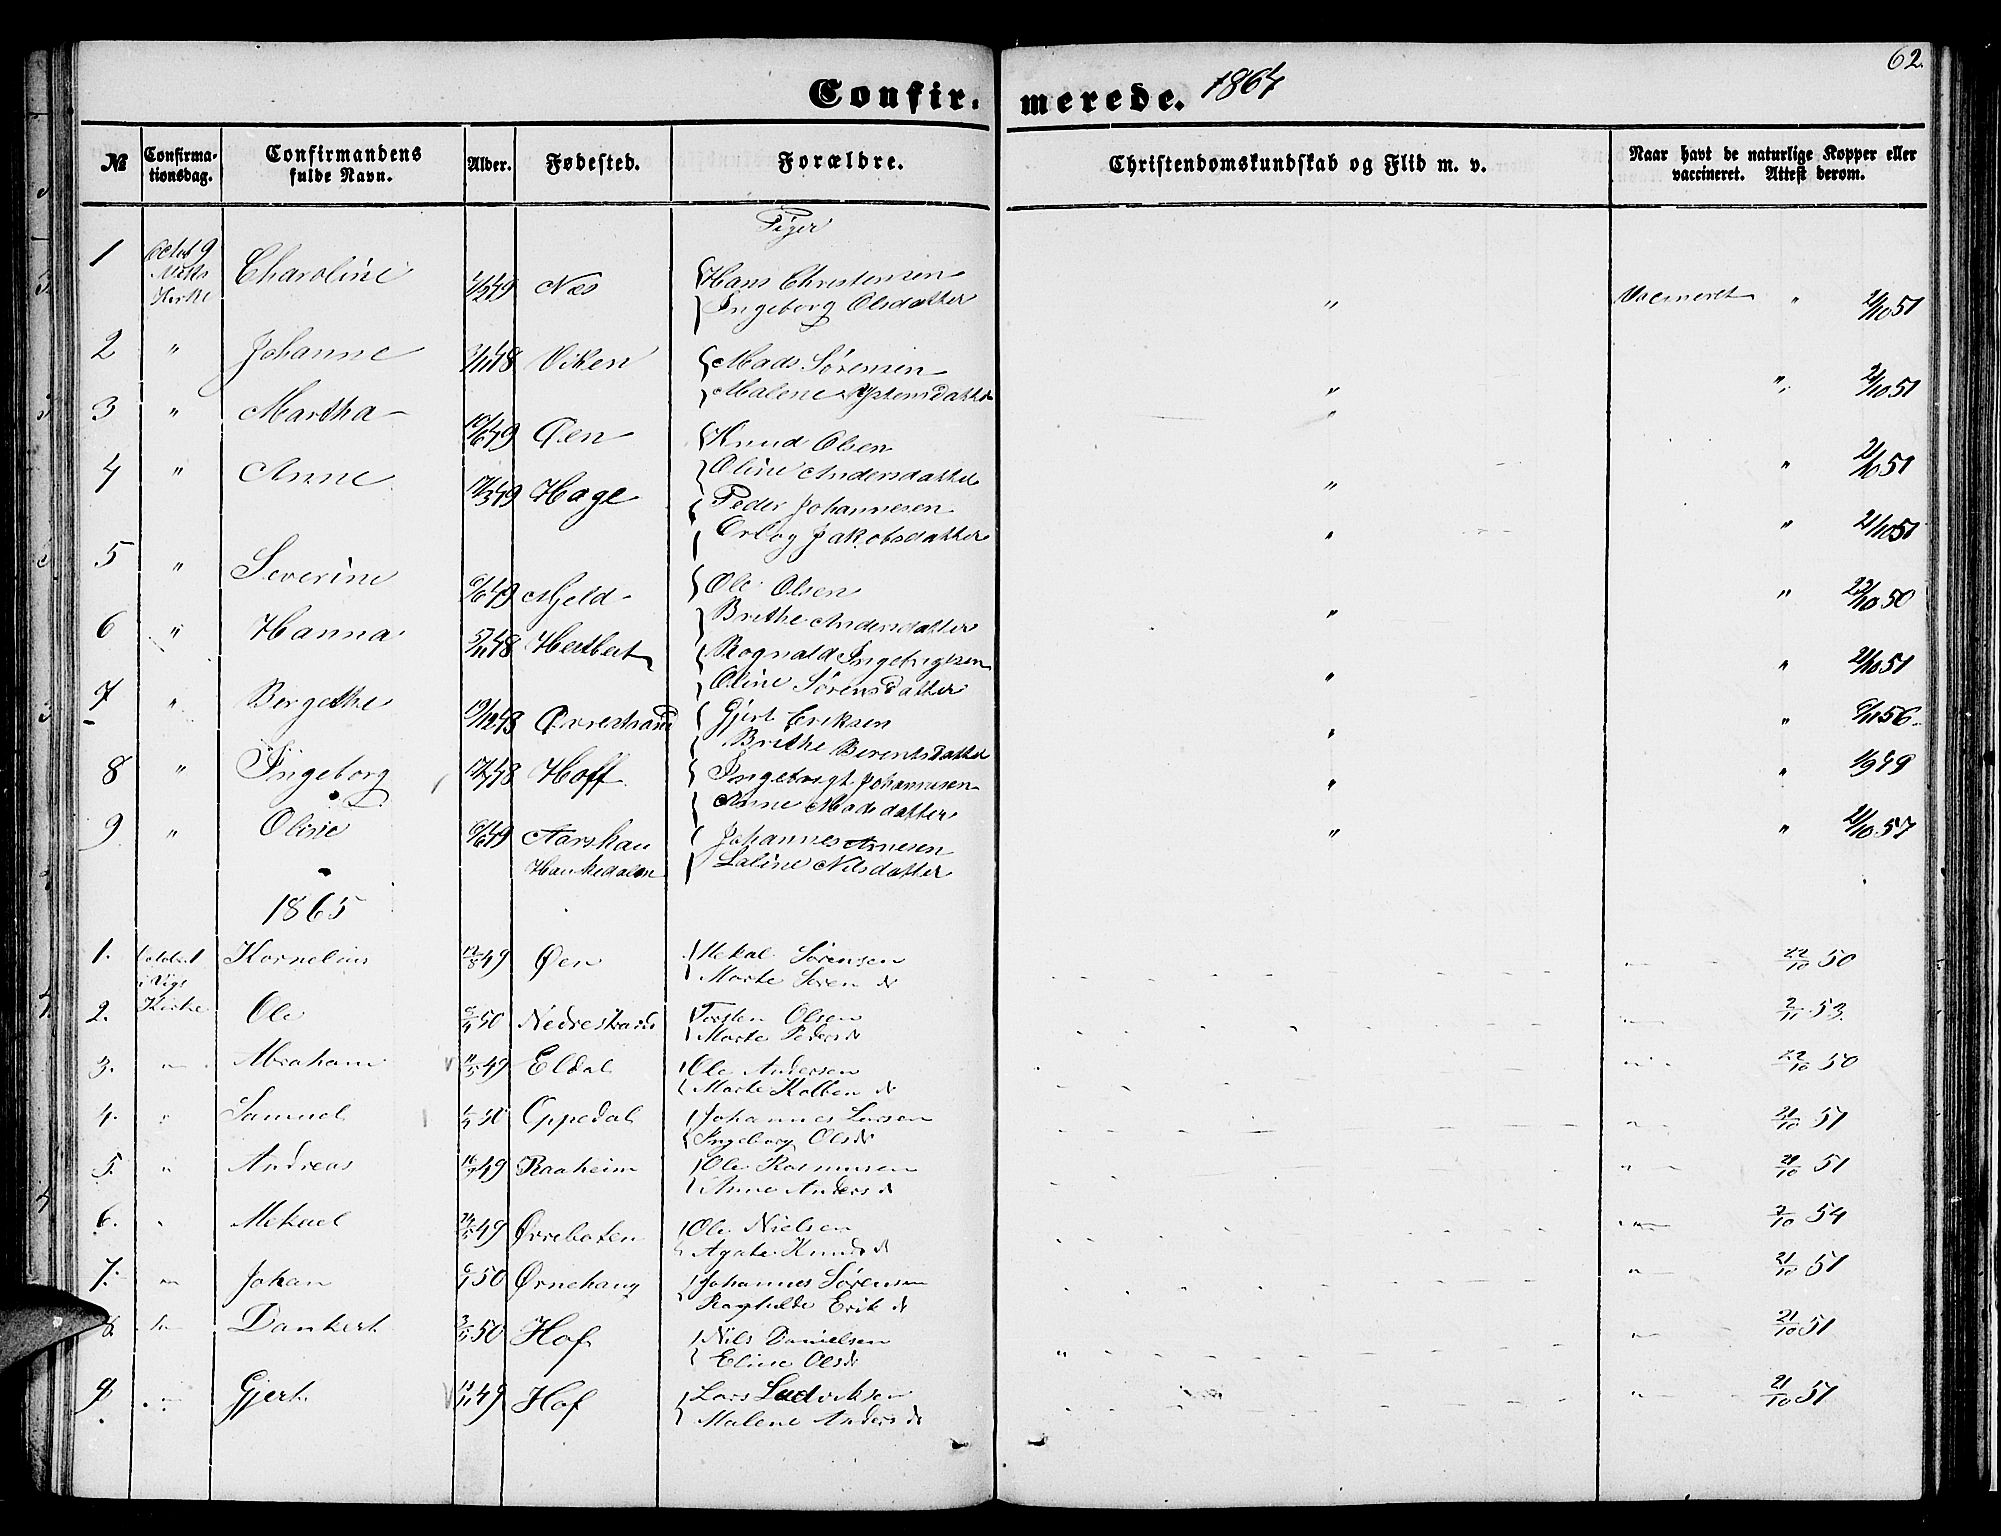 62.
Confir- merede. 1864
№ Confirma-tionsdag. Confirmandens fulde Navn. Alder. Fødested. Forældre. Christendomskundskab og Flid m. v. Naar havt de naturlige Kopper eller vaccineret. Attest derom.
Piger
1 Octob 9 Charoline 49 Næs Hans Christensen " Vacineret " 21/10 51
Kirke Ingeborg Olsdatter
2 " Johanne 3/11 48 Viken Mads Sørensen " " 21/10 51
Malene Østensdatter
3 " Martha 10/6 49 Øen Knud Olsen " " 51
Oline Andersdatter
4 " Anne 12/3 49 Hage Peder Johannesen " " 21/10 51
Jakobsdatter
5 " Severine 6/6 49 Mjeld Ole Olsen " " 22/10 50
Brithe Andersdatter
6 " Hanna 5/11 48 Rognald Ingebrigtsen " " 21/10 51
Oline Sørensdatter
7 " Bergethe 19/12 48 Øvrestrand Gjert Eriksen " " 6/11 56
Brithe Berentsdatter
8 " Ingeborg 48 Hoff Ingebrigt Johannesen " " 1/9 49
Anne Madsdatter
9 " Oline 6/6 49 Johannes Arnesen " " 21/10 57
Haukedalen Laline Nilsdatter
1865
1. Octob. 1 Kornelius 12/8 49 Øen Mekal Sørensen " 22/10 50
i Vigs Marte Søren d
2. Kirke Ole 50 Nedrestrand Torsten Olsen " 2/11 53
Marte Peders d
3. " Abraham 49 Eldal Ole Andersen " 22/10 50
Marte Kolben d
4. " Samuel 50 Oppedal Johannes Larsen " 21/10 51
Ingeborg Olsd
5. " Andreas 49 Raaheim Ole Rasmusen " 21/10 51
Anne Anders d
6. " Mekael 49 Ørreboten Ole Nielsen " 7/10 54
Agate Knuds d
7. " Johan 50 Ørnehaug Johannes Sørensen " 21/10 51
Raghilde Erik d
8. " Dankert 50 Hof Nils Danielsen " 21/10 51
Eline Olsd
9. " Gjert 49 Hof Lars Ludviksen " 21/10 51
Malene Anders d